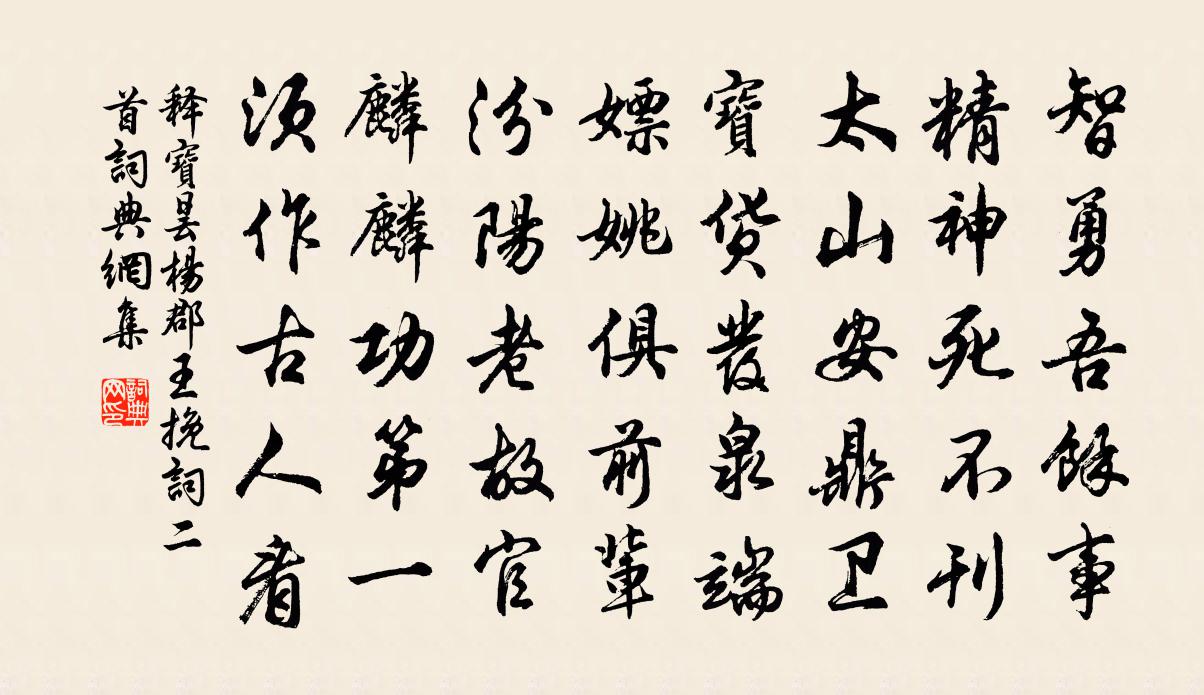 智勇吾餘事
精神死不刊
太山安鼎卫
寶货發泉端
嫖姚俱前輩
汾陽老故官
麟麟功第一
須作古人看
释寶昙楊郡王挽詞二
首詞典網集
詞典
网印